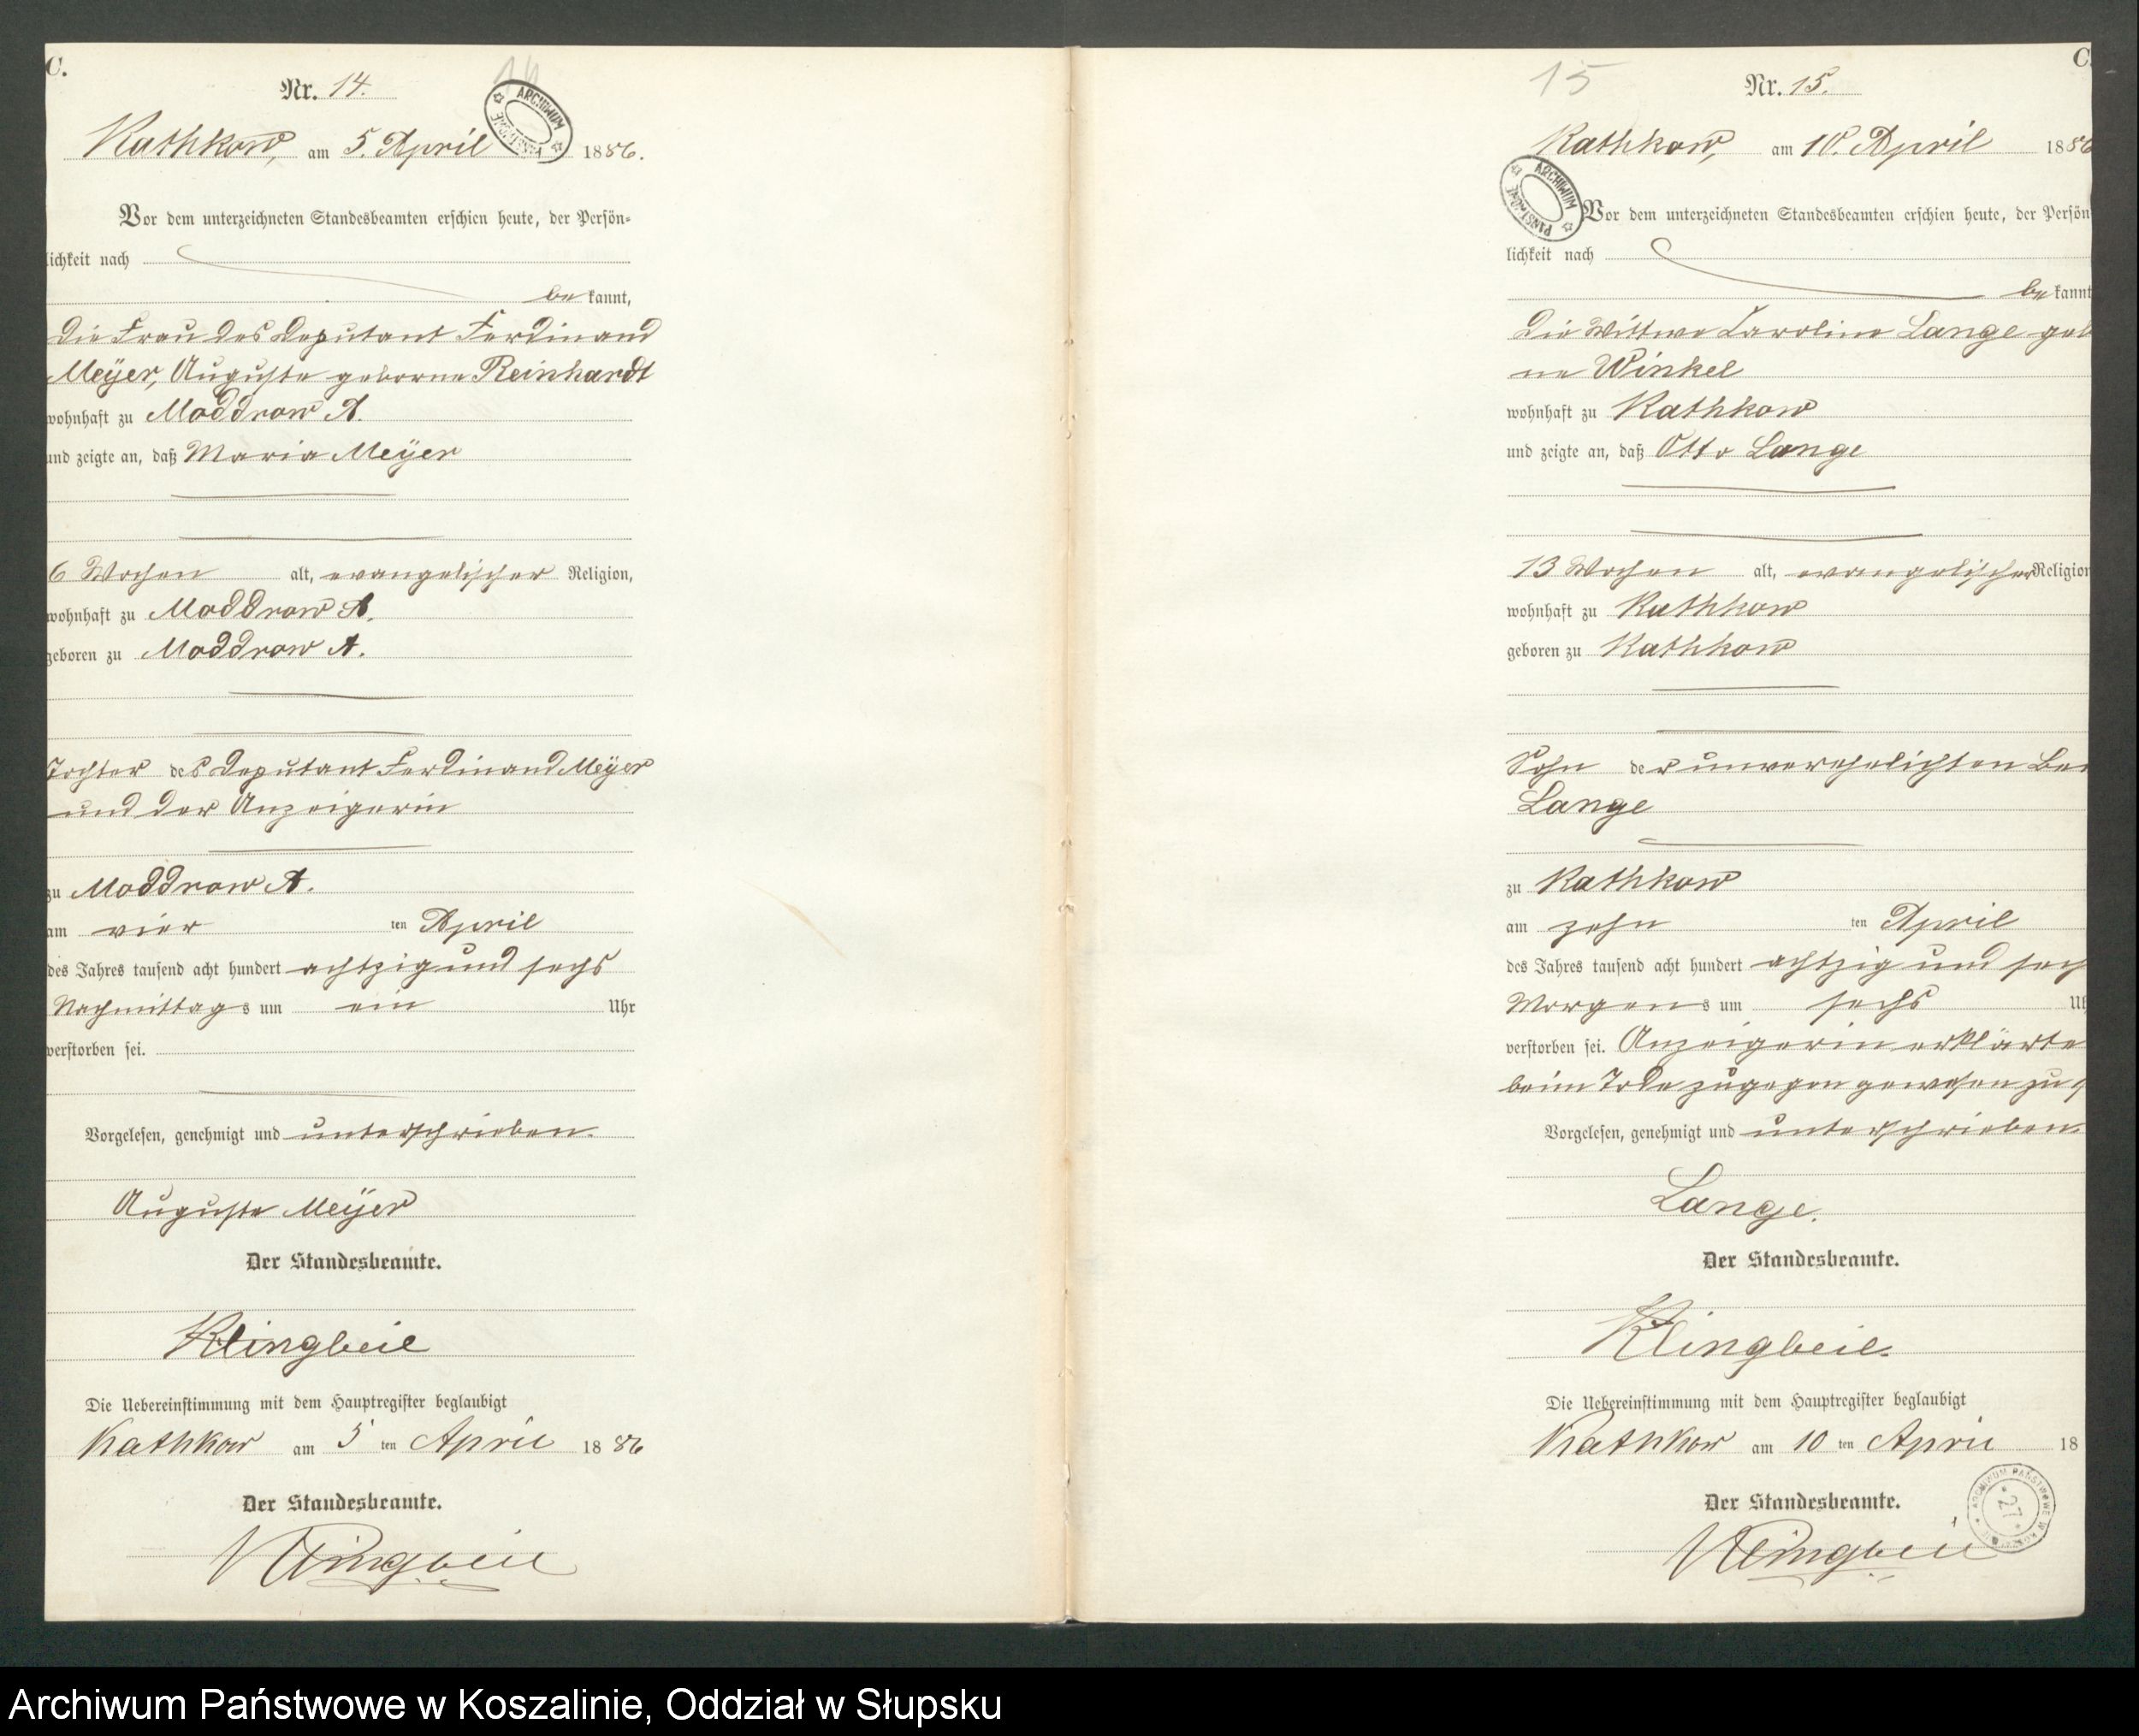 C.
Nr. 14.
14
ARCHIWUM PAŃSTWOWE
Kathkow, am 5. April 1886.
Vor dem unterzeichneten Standesbeamten erschien heute, der Persön-
lichkeit nach
be kannt,
die Frau des Deputant Ferdinand
Meÿer, Auguste geborne Reinhardt
wohnhaft zu Moddrow A.
und zeigte an, daß Maria Meÿer
6 Wochen alt, evangelischer Religion,
wohnhaft zu Moddrow A.
geboren zu Moddrow A.
Tochter des Deputant Ferdinand Meÿer
und der Anzeigerin
zu Moddrow A.
am vier ten April
des Jahres tausend acht hundert achtzig und sechs
Nachmittags um ein Uhr
verstorben sei.
Vorgelesen, genehmigt und unterschrieben.
Auguste Meÿer
Der Standesbeamte.
Klingbeil
Die Uebereinstimmung mit dem Hauptregister beglaubigt
Kathkow am 5 ten April 1886
Der Standesbeamte.
Klingbeil
C.
15
Nr. 15.
Kathkow, am 10. April 1886
ARCHIWUM PAŃSTWOWE
Vor dem unterzeichneten Standesbeamten erschien heute, der Persön
lichkeit nach
be kannt
die Wittwe Caroline Lange geb
ne Winkel
wohnhaft zu Kathkow
und zeigte an, daß Otto Lange
13 Wochen alt, evangelischer Religion
wohnhaft zu Kathkow
geboren zu Kathkow
Sohn der unverehelichten Ber
Lange
zu Kathkow
am zehn ten April
des Jahres tausend acht hundert achtzig und sech
Morgens um sechs Uh
verstorben sei. Anzeigerin erklärte
beim Tode zugegen gewesen zu s
Vorgelesen, genehmigt und unterschrieben.
Lange.
Der Standesbeamte.
Klingbeil.
Die Uebereinstimmung mit dem Hauptregister beglaubigt
Kathkow am 10 ten April 18
Der Standesbeamte.
Klingbeil
ARCHIWUM PAŃSTWOWE W
27
Archiwum Państwowe w Koszalinie, Oddział w Słupsku